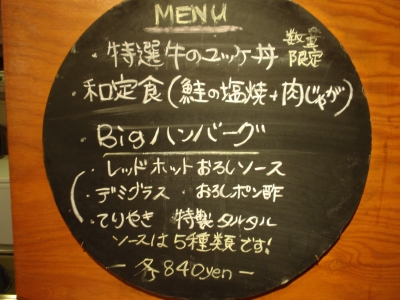 MENU
・特選牛のユッケ丼 数量限定
・和定食(鮭の塩焼+肉じゃが)
・Bigハンバーグ
・レッドホットおろしソース
・デミグラス おろしポン酢
・てりやき 特製タルタル
ソースは5種類です!
ー各840yenー